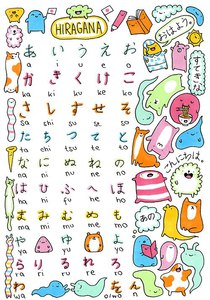 HIRAGANA
おはよう。
あ い う え お
a i u e o
か き く け こ
ka ki ku ke ko
さ し す せ そ
sa shi su se so
た ち つ て と
ta chi tsu te to
な に ぬ ね の
na ni nu ne no
こんにちは。
は ひ ふ へ ほ
ha hi fu he ho
ま み む め も
ma mi mu me mo
あの
や ゆ よ
ya yu yo
ら り る れ ろ
ra ri ru re ro
わ を ん
wa o/wo n